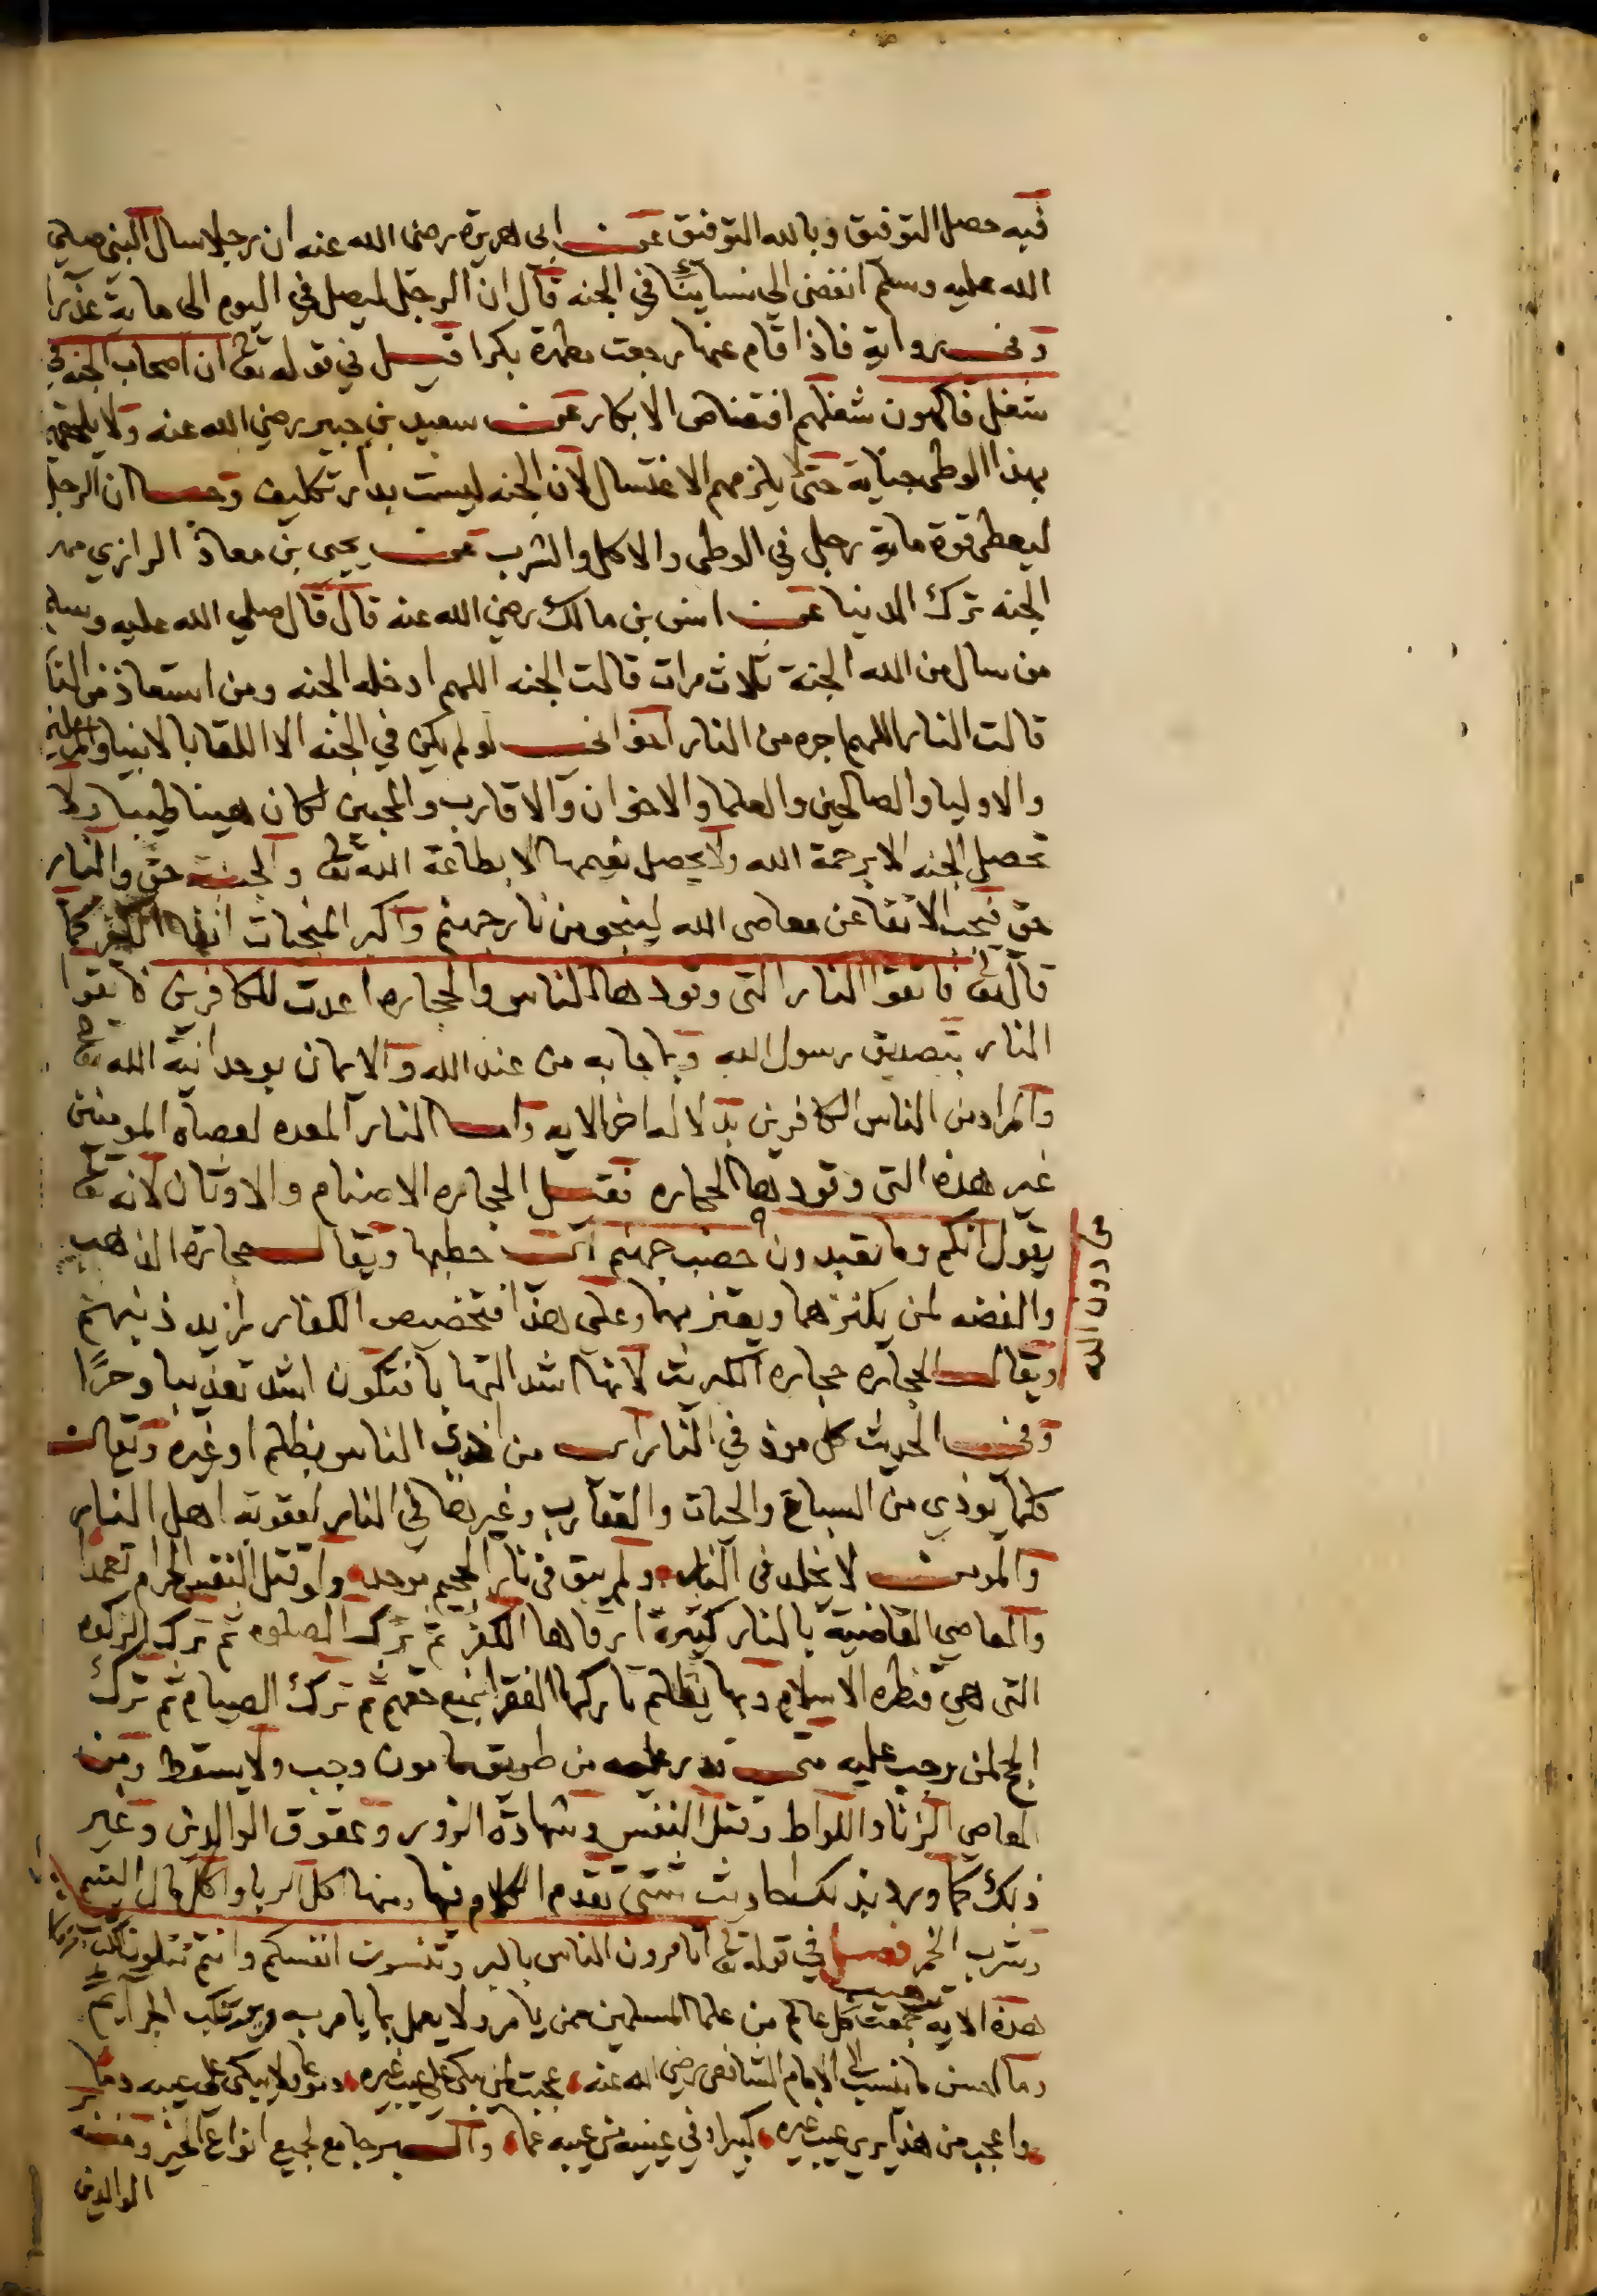 فيه حصل التوفيق وبالله التوفيق عن ابي هريرة رضى الله عنه ان رجلا سال النبي صلي
الله عليه وسلم انفضى الي نسائنا في الجنه قال ان الرجل ليصل في اليوم الى ماية عذرا
وفي رواية فاذا قام عنها رجعت مطهرة بكرا قيل في قوله تعا ان اصحاب الجنه في
شغل فاكهون شغلهم افتضاض الابكار عن سعيد بن جبير رضي الله عنه ولا يلحقهم
بهذا الوطى جنابة حتى يلزمهم الاغتسال لان الجنه ليست بدار تكليف وحسا ان الرجل
ليعطى قوة ماية رجل في الوطى والاكل والشرب عن يحيى بن معاذ الرازي مهر
الجنه ترك الدنيا عن انس بن مالك رضي الله عنه قال قال صلي الله عليه وسلم
من سال من الله الجنة ثلاث مرات قالت الجنه اللهم ادخله الجنه ومن استعاذ من النا
قالت النار اللهم اجره من النار اخواني لو لم يكن في الجنه الا اللقا بالانبيا والمرسلين
والاوليا والصالحين والعلما والاخوان والاقارب والمحبين لكان هينا طيبا ولا
تحصل الجنه الا برحمة الله ولا يحصل نعيمها الا بطاعة الله تعا والجنة حق والنار
حق فيجب الاتقا عن معاصى الله لينجو من نار جهنم واكبر المنجيات اتقا الكفر كما
قال تعا فاتقوا النار التى وقودها الناس والحجاره اعدت للكافرين فاتقوا
النار بتصديق رسول الله وبما جا به من عند الله والايمان بوحدانية الله تعا
والمراد من الناس الكافرين بدلالة اخر الايه واما النار المعده لعصاة المومنين
غير هذه التى وقودها الحجاره فقيل الحجاره الاصنام والاوثان لانه تعا
يقول انكم وما تعبدون حصب جهنم اي حطبها ويقال حجارة الذهب
من دون الله
والفضه لمن يكنزهما ويغتر بهما وعلى هذا فتخصيص الكفار لمزيد ذنبهم
ويقال الحجاره حجارة الكبريت لانها اشد التهابا فتكون اشد تعذيبا وحرًا
وفي الحديث كل موذ في النار اي من اذى الناس بظلم او غيره ويقال
كلما يوذي من السباع والحيات والعقارب وغيرها في النار لعقوبة اهل النار
والمومن لا يخلد فى النار ولم يبق فى نار الجحيم موحد ولو قتل النفس الحرام تعمدا
والمعاصي القاضية بالنار كثيرة ارقاها الكفر ثم ترك الصلوه ثم ترك الزكوه
التى هي قنطره الاسلام وبها يظلم تاركها الفقرا بمنع حقهم ثم ترك الصيام ثم ترك
الحج لمن وجب عليه متى قدر عليه من طريق مامون وجب ولا يسقط ومن
المعاصي الزنا واللواط وقتل النفس وشهادة الزور وعقوق الوالدين وغير
ذلك كما ورد بذلك احاديث شتى تقدم الكلام فيها ومنها اكل الربا واكل مال اليتيم
وشرب الخمر فصل في قوله تعا اتامرون الناس بالبر وتنسون انفسكم وانتم تتلون الكتاب
هذه الايه جمعت كل عالم من علما المسلمين عمن يامر ولا يعمل بما يامر به ويرتكب الجرايم
وما احسن ما ينسب الي الامام الشافعى رضي الله عنه عجبت لمن يبكى على عيب غيره دموعا ولا يبكى على عيبه دما
واعجب من هذا يرى عيب غيره كبيرا وفي عينيه من عيبه عما والبر جامع لجميع انواع الخير ومنه
الوالدين